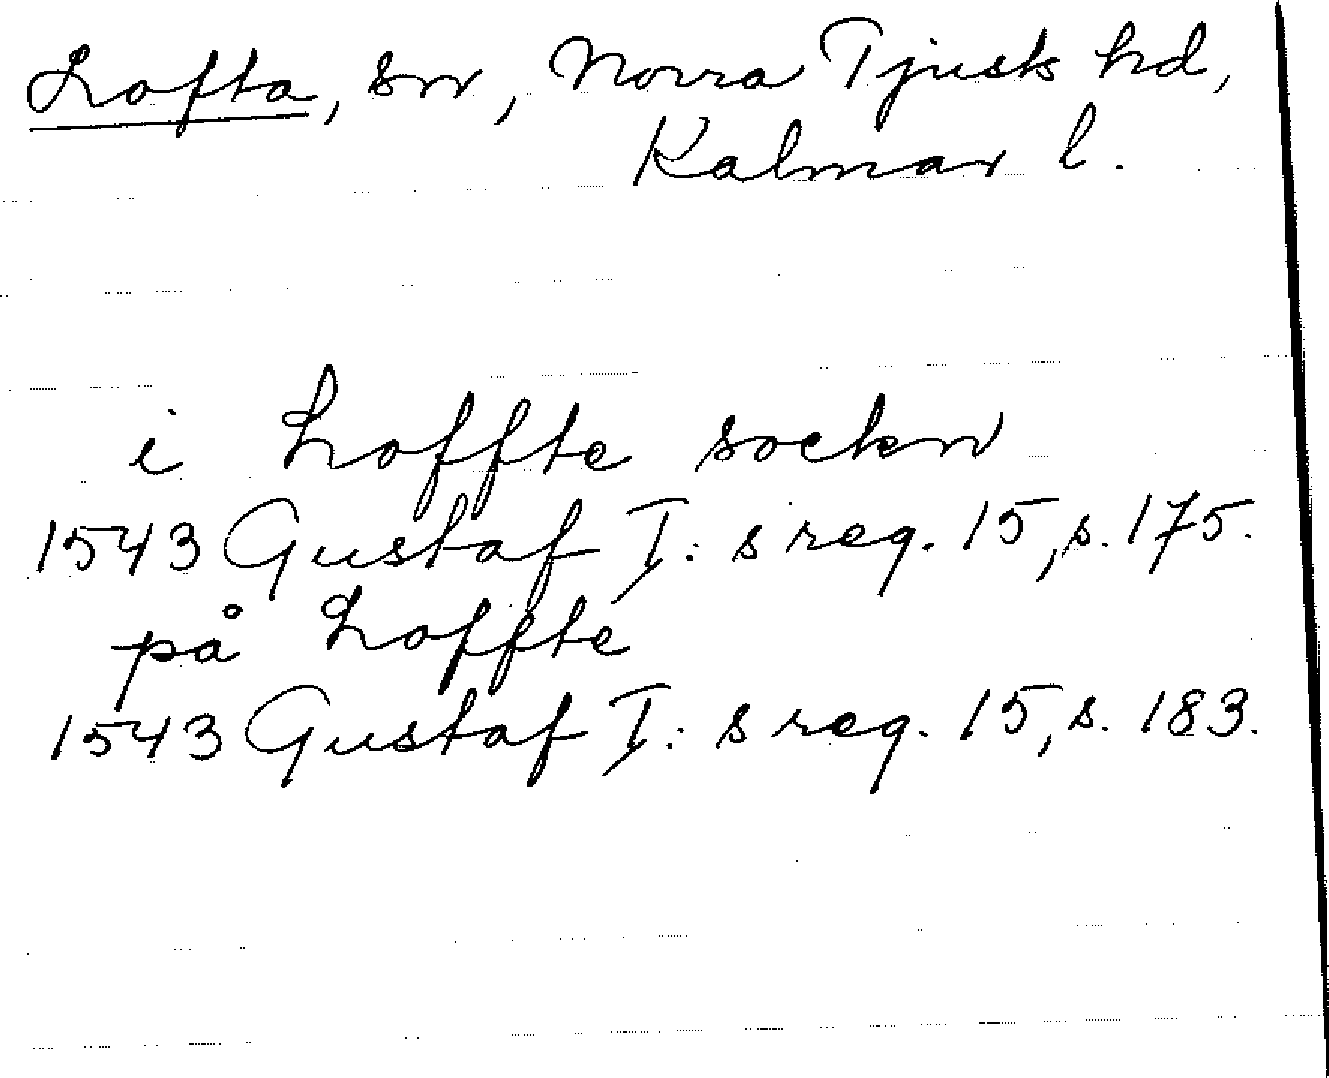 Lofta, sn, Norra Tjusts hd,
Kalmar l.
i Loffte sockn
1543 Gustaf I: s reg. 15, s. 175.
på Loffte
1543 Gustaf I: s reg. 15, s. 183.